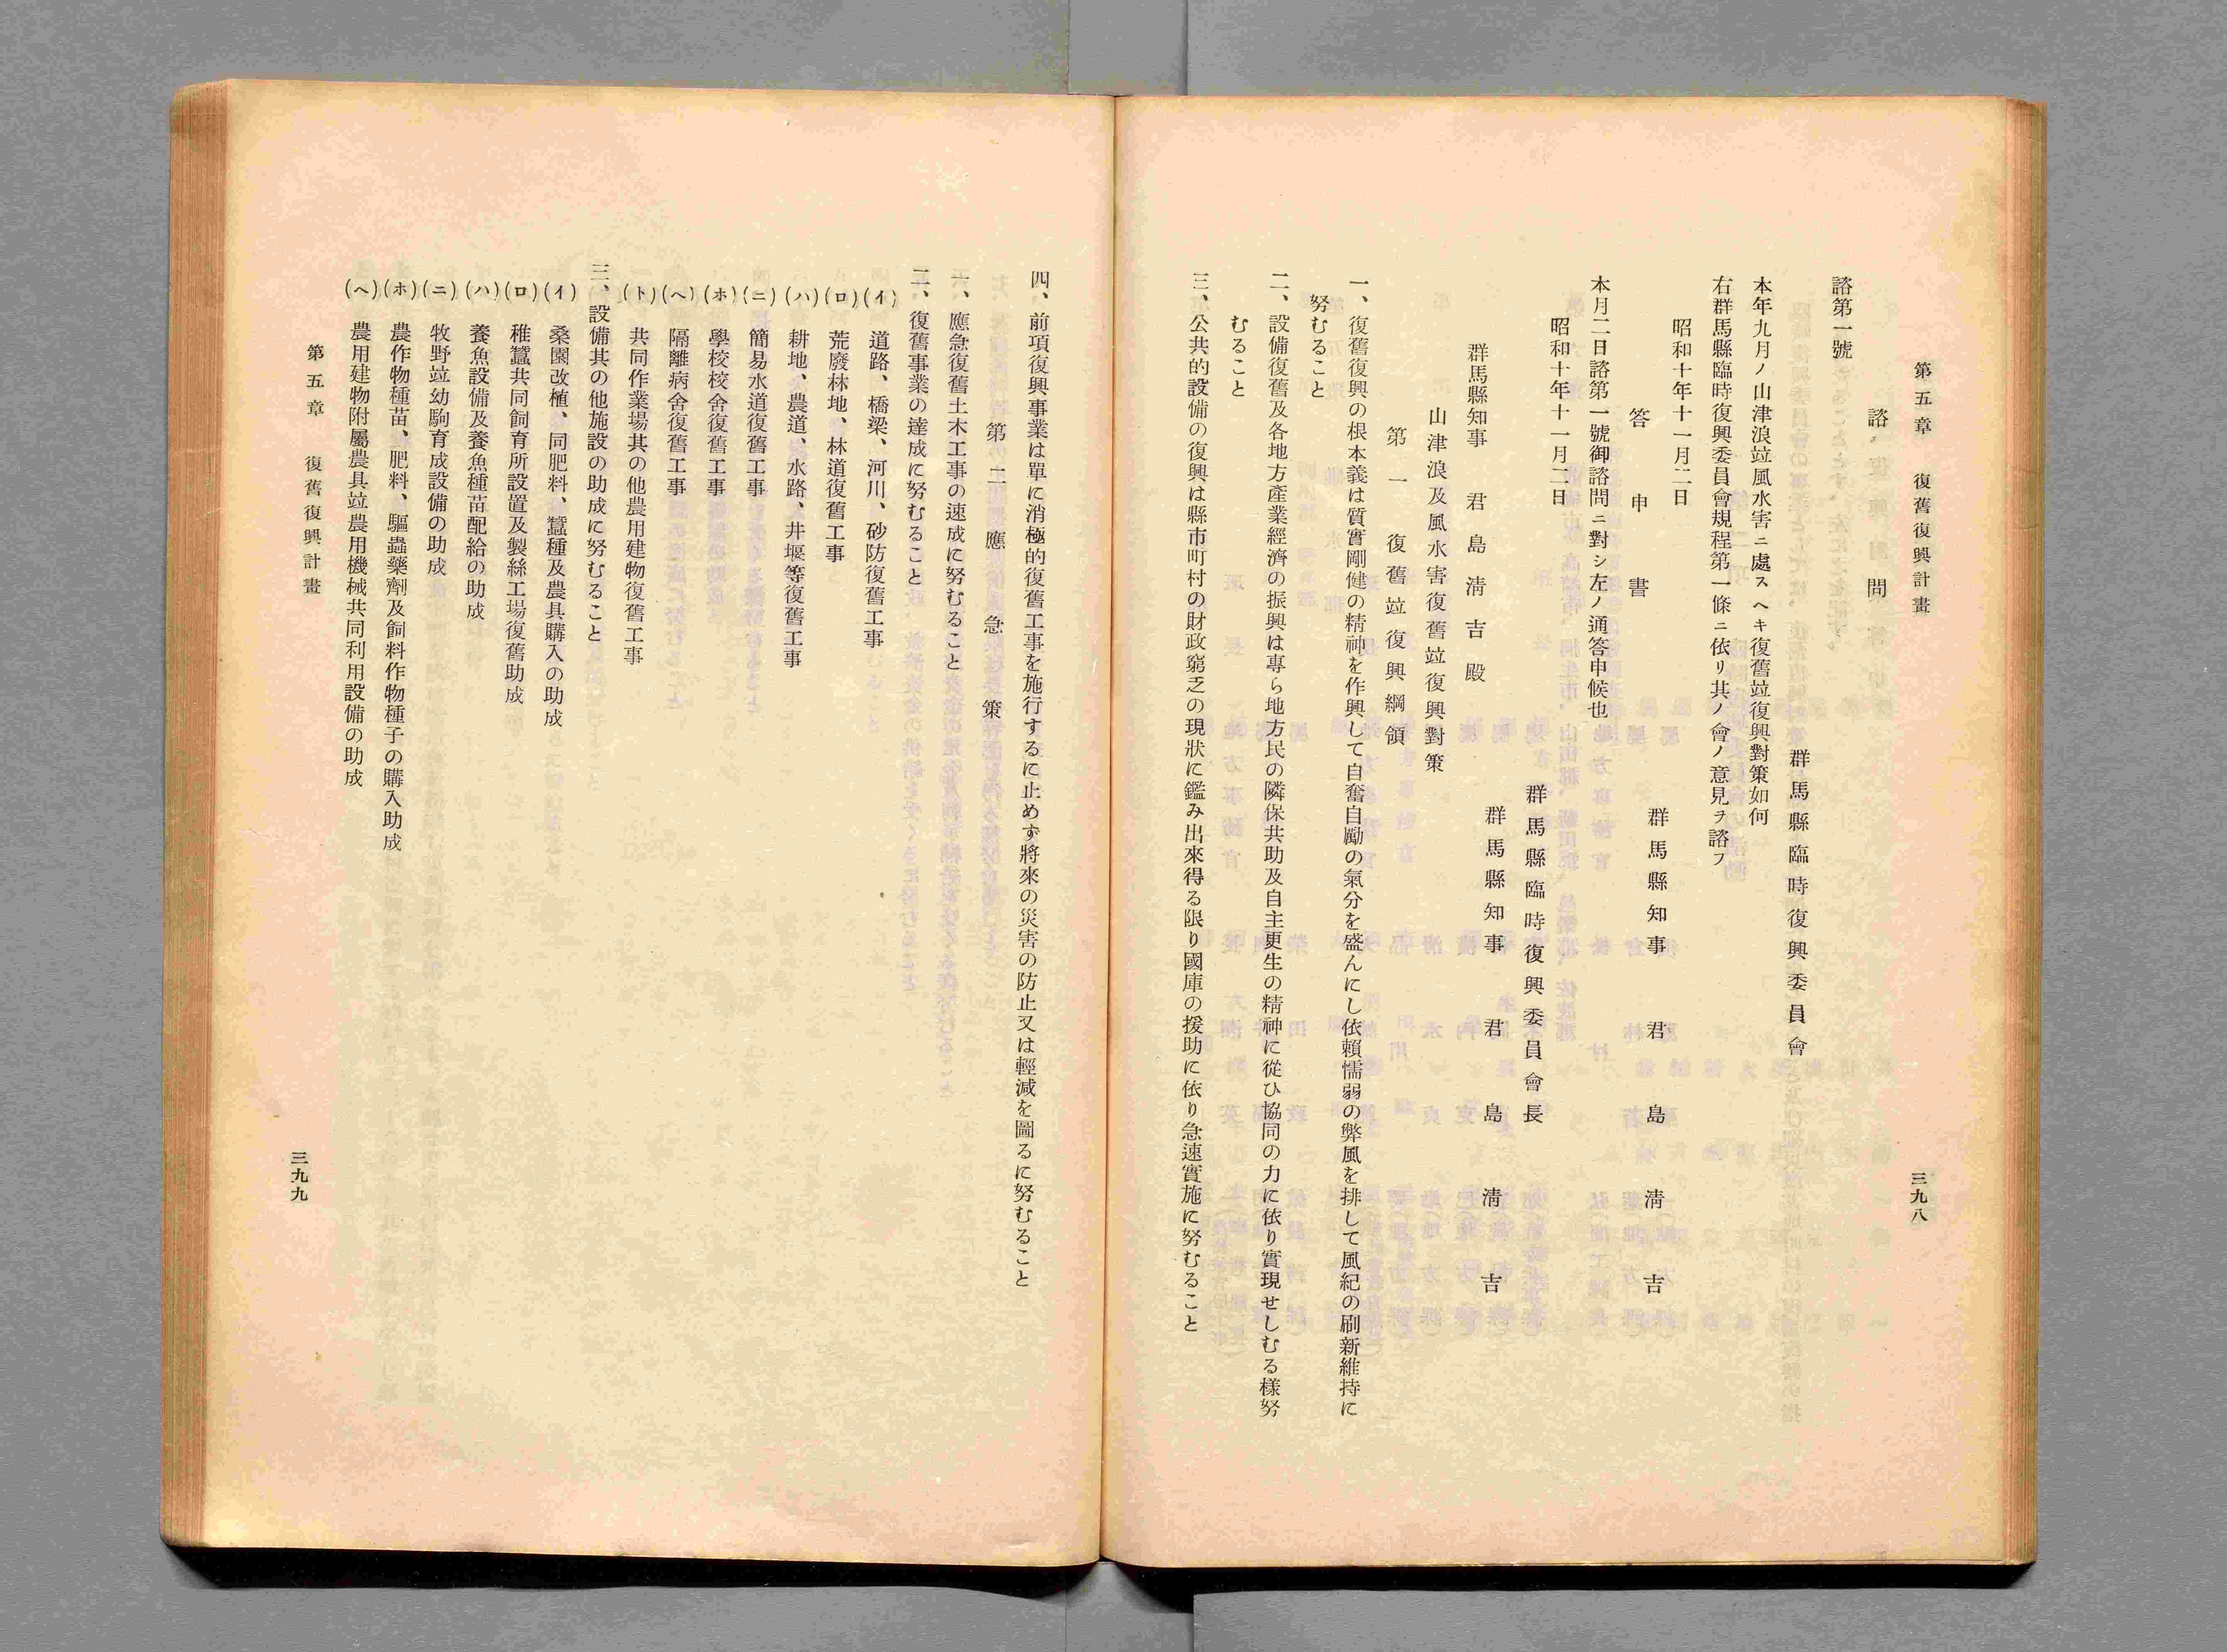 第五章　復舊復興計畫
三九八
諮問
諮第一號
群馬縣臨時復興委員會
本年九月ノ山津浪竝風水害ニ處スヘキ復舊竝復興對策如何
右群馬縣臨時復興委員會規程第一條ニ依リ其ノ會ノ意見ヲ諮フ
昭和十年十一月二日
群馬縣知事　君島淸吉
答申書
本月二日諮第一號御諮問ニ對シ左ノ通答申候也
昭和十年十一月二日
群馬縣臨時復興委員會長
群馬縣知事　君島淸吉
群馬縣知事　君島淸吉殿
山津浪及風水害復舊竝復興對策
第一　復舊竝復興綱領
一、復舊復興の根本義は質實剛健の精神を作興して自奮自勵の氣分を盛んにし依賴懦弱の弊風を排して風紀の刷新維持に
努むること
二、設備復舊及各地方產業經濟の振興は專ら地方民の隣保共助及自主更生の精神に從ひ協同の力に依り實現せしむる樣努
むること
三、公共的設備の復興は縣市町村の財政窮乏の現狀に鑑み出來得る限り國庫の援助に依り急速實施に努むること
四、前項復興事業は單に消極的復舊工事を施行するに止めず將來の災害の防止又は輕減を圖るに努むること
第二　應急策
一、應急復舊土木工事の速成に努むること
二、復舊事業の達成に努むること
(イ)　道路、橋梁、河川、砂防復舊工事
(ロ)　荒廢林地、林道復舊工事
(ハ)　耕地、農道、水路、井堰等復舊工事
(ニ)　簡易水道復舊工事
(ホ)　學校校舍復舊工事
(ヘ)　隔離病舍復舊工事
(ト)　共同作業場其の他農用建物復舊工事
三、設備其の他施設の助成に努むること
(イ)　桑園改植、同肥料、蠶種及農具購入の助成
(ロ)　稚蠶共同飼育所設置及製絲工場復舊助成
(ハ)　養魚設備及養魚種苗配給の助成
(ニ)　牧野竝幼駒育成設備の助成
(ホ)　農作物種苗、肥料、驅蟲藥劑及飼料作物種子の購入助成
(ヘ)　農用建物附屬農具竝農用機械共同利用設備の助成
第五章　復舊復興計畫
三九九